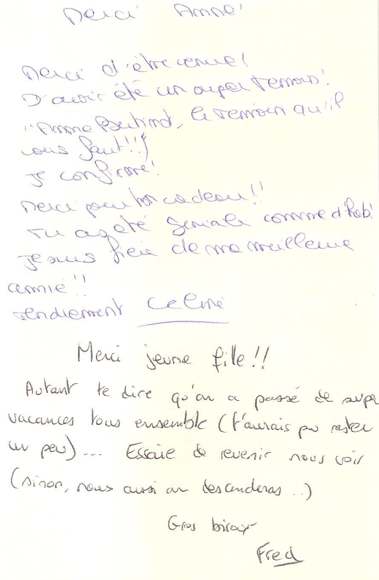 Merci Anne!
Merci d'être venue!
D'avoir été un super temoin!
"Anne Boutind, le temoin qu'il
vous faut!!"
Je confirme!
Merci pour ton cadeau!!
Tu as été géniale comme d'hab!
Je suis fier de ma meilleure
amie!!
tendrement Celine
Merci jeune fille!!
Autant te dire qu'on a passé de super
vacances tous ensemble (t'aurais pu rester
un peu)... Essaie de revenir nous voir
(sinon, nous aussi on descendras..)
Gros bisoux
Fred